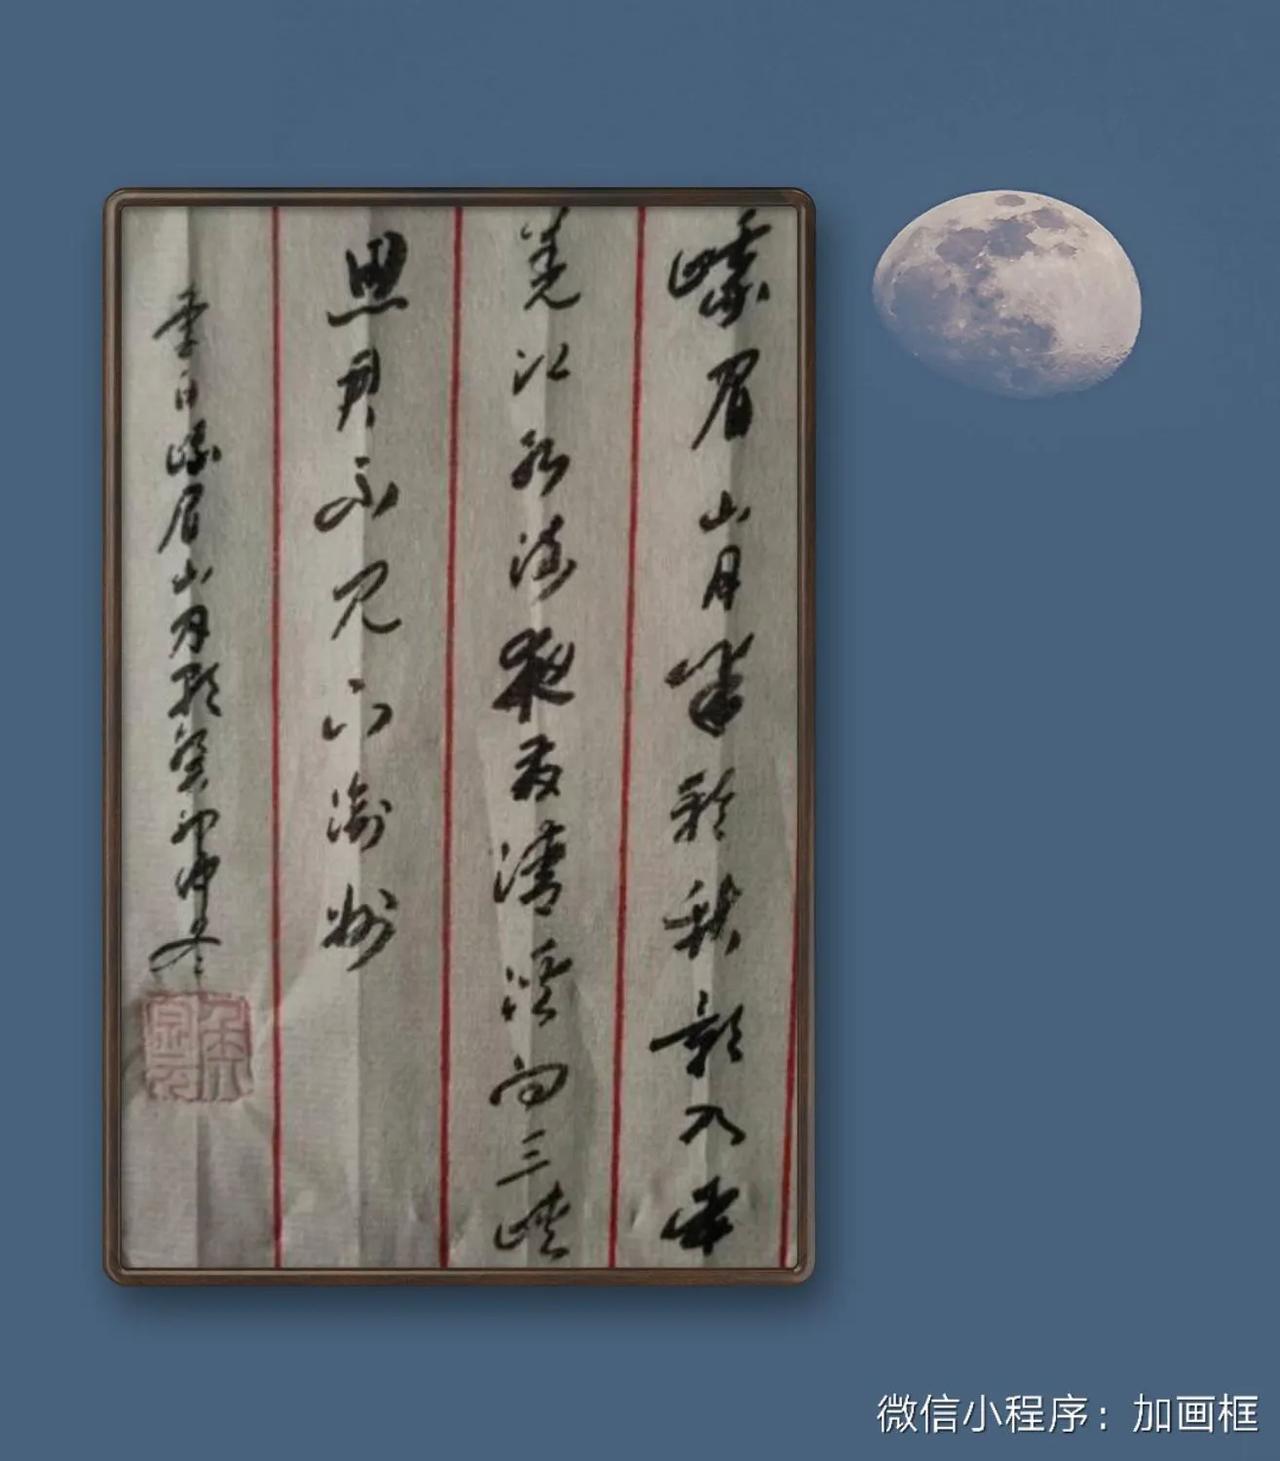 峨眉山月半轮秋影入平
羌江水流夜发清溪向三峡
思君不见下渝州
李白峨眉山月歌癸卯仲冬
微信小程序：加画框